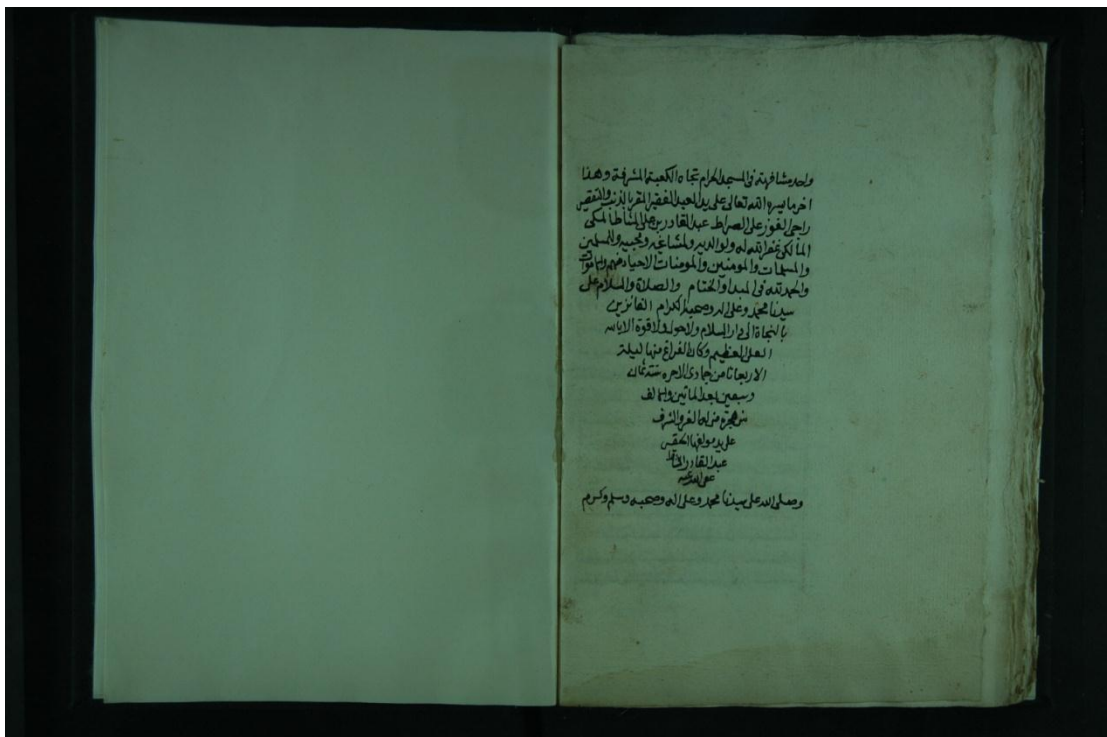 واحد مشافهته في المسجد الحرام تجاه الكعبة المشرفة وهذا
اخر ما يسره الله تعالى على يد العبد الفقير المقر بالذنب والتقصير
راجي الفوز على الصراط عبد القادر بن علي المشاط المكي
المالكي غفر الله له ولوالديه ولمشايخه ومحبيه والمسلمين
والمسلمات والمومنين والمومنات الاحياء منهم والاموات
والحمد لله في المبدا والختام والصلاة والسلام على
سيدنا محمد وعلى اله وصحبه الكرام الفائزين
بالنجاة الى دار السلام ولا حول ولا قوة الا بالله
العلي العظيم وكان الفراغ منها ليلة
الاربعا ثامن جمادى الاخره سنة ثمان
وسبعين بعد الماتين والالف
من هجرة من له العز والشرف
على يد مولفها الحقير
عبد القادر المشاط
عفى الله عنه
وصلى الله على سيدنا محمد وعلى اله وصحبه وسلم وكرم